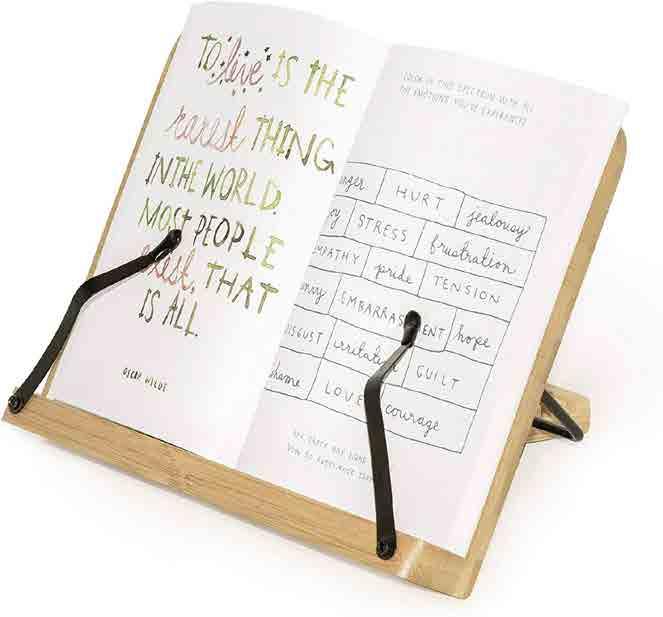 TO live IS THE
rarest THING
IN THE WORLD.
MOST PEOPLE
exist, THAT
IS ALL.
OSCAR WILDE
COLOR IN THIS SPECTRUM WITH ALL
THE EMOTIONS YOU'VE EXPERIENCED
HURT jealousy
STRESS frustration
pride TENSION
EMBARRAS ENT hope
irritation GUILT
LOVE courage